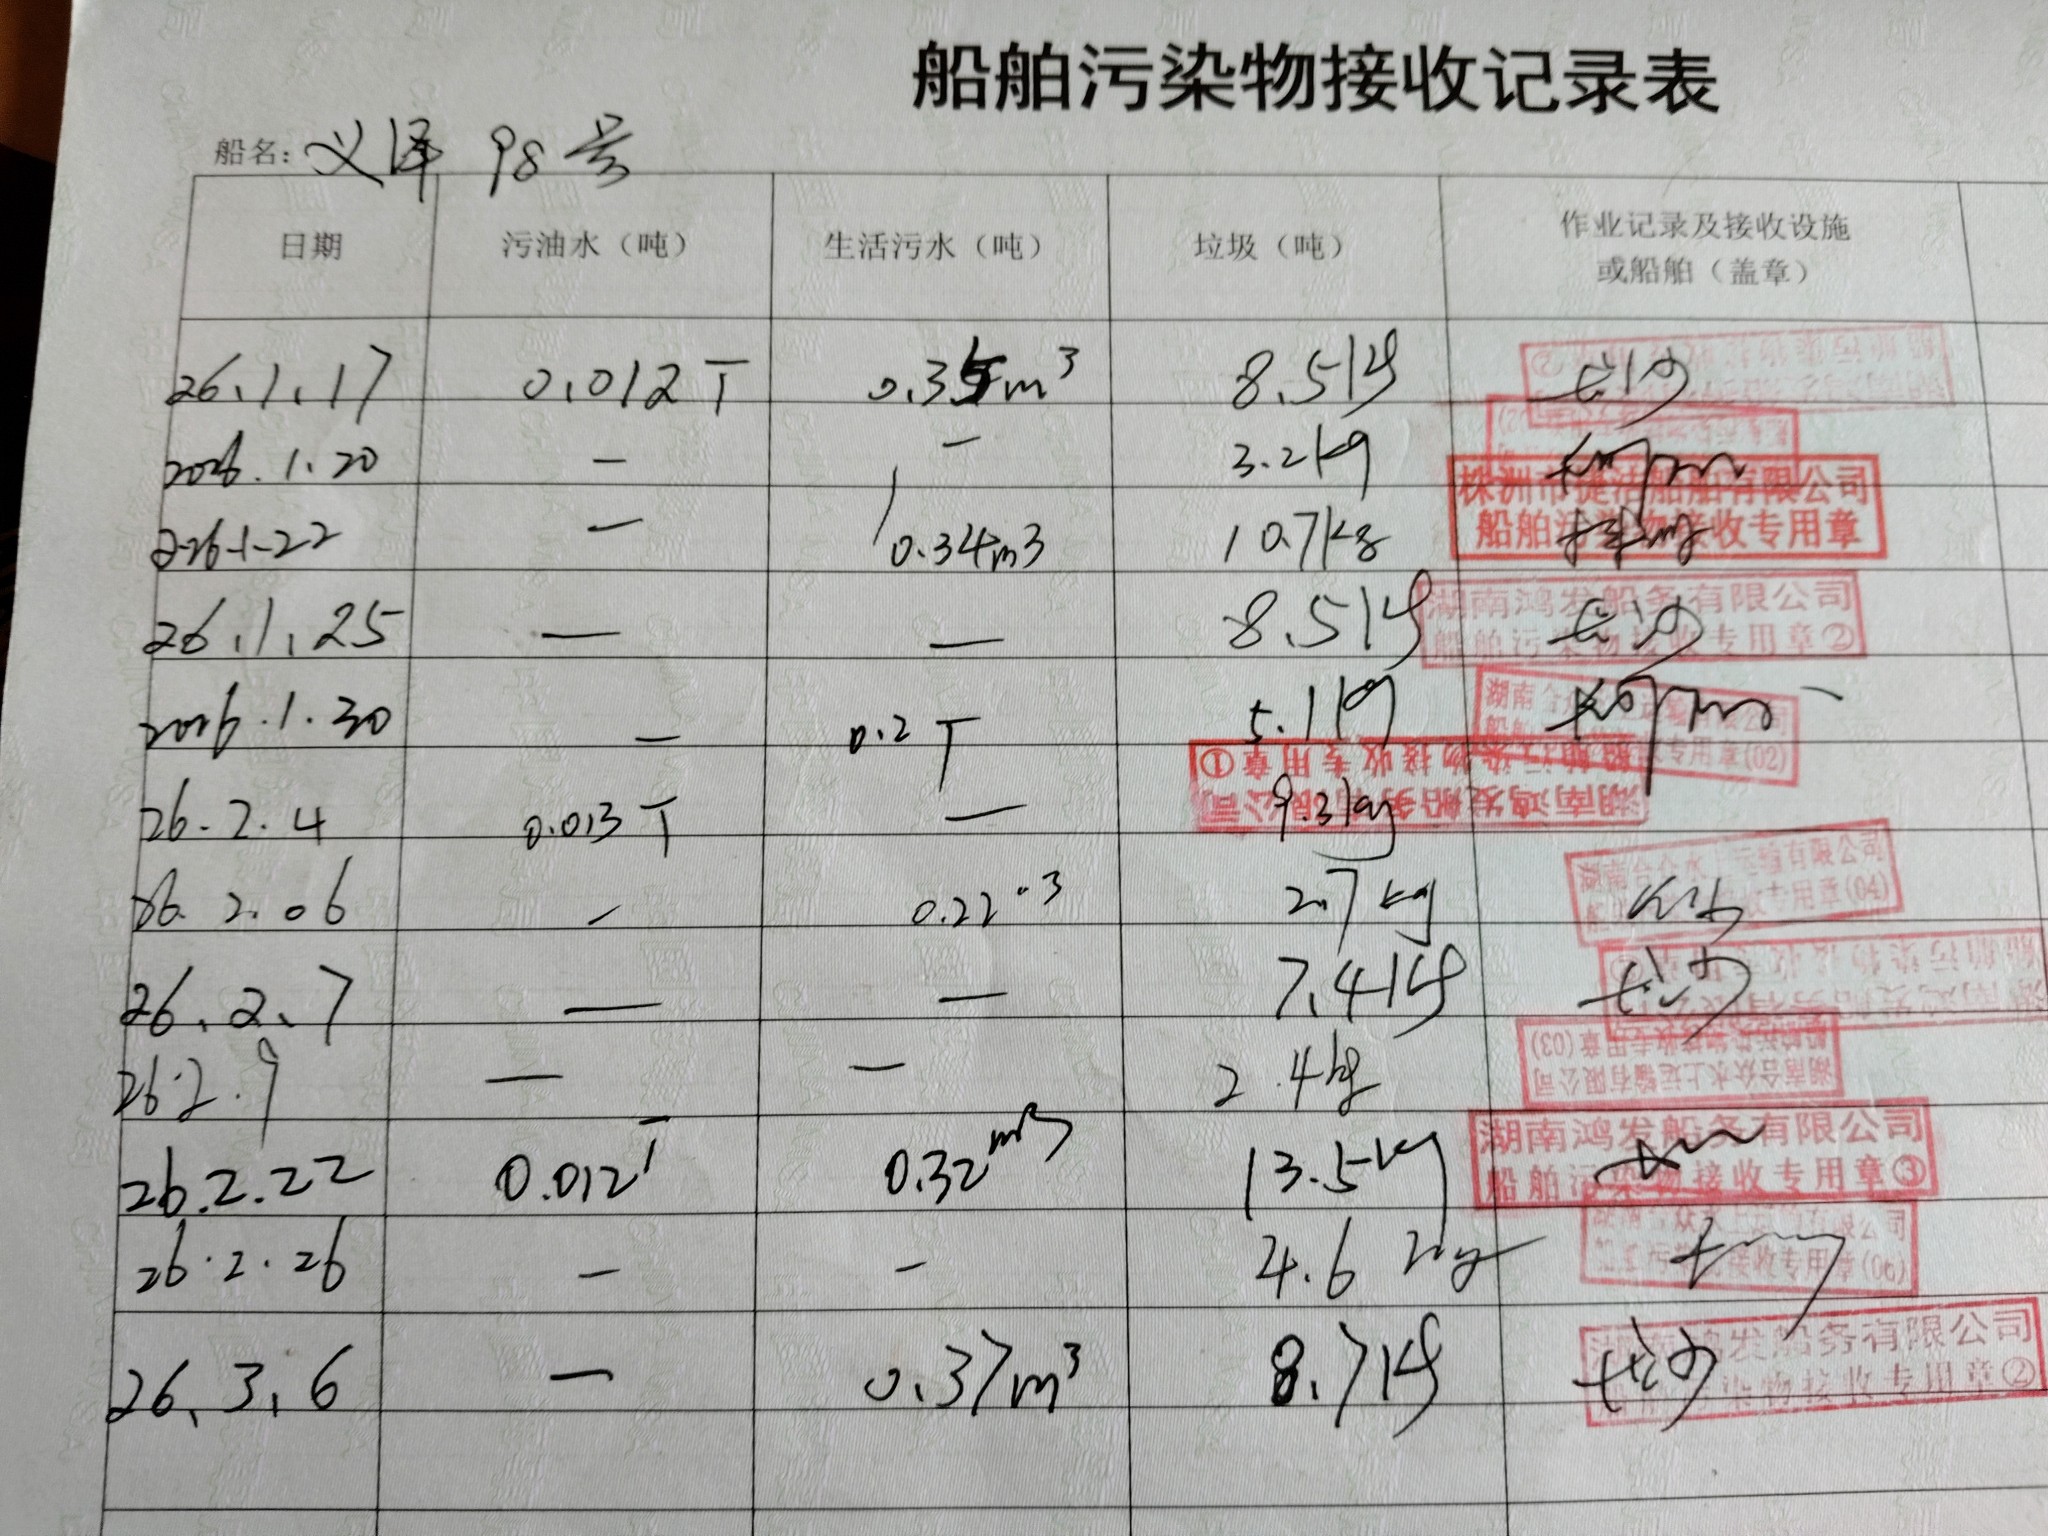 船舶污染物接收记录表
船名：义泽 98号
日期 污油水（吨） 生活污水（吨） 垃圾（吨） 作业记录及接收设施
或船舶（盖章）
26.1.17 0.012T 0.35m³ 8.5kg 长沙
2026.1.20 — — 3.2kg
株洲市捷洁船舶有限公司
船舶污染物接收专用章
2026-1-22 — 0.34m3 10.7kg 株洲
26.1.25 — — 8.5kg 长沙
湖南鸿发船务有限公司
船舶污染物接收专用章②
2026.1.30 — 0.2T 5.1kg
专用章(02)
26.2.4 0.013T — 9.3kg
湖南鸿发船务有限公司
船舶污染物接收专用章①
26.2.06 — 0.22 m3 2.7kg 长沙
湖南合众水上运输有限公司
接收专用章(04)
26.2.7 — — 7.4kg 长沙
湖南鸿发船务有限公司
船舶污染物接收专用章
26.2.9 — — 2.4kg
湖南合众水上运输有限公司
船舶污染物接收专用章(03)
26.2.22 0.012T 0.32m3 13.5kg
湖南鸿发船务有限公司
船舶污染物接收专用章③
26.2.26 — — 4.6kg
湖南合众水上运输有限公司
船舶污染物接收专用章(06)
26.3.6 — 0.37m³ 8.7kg 长沙
湖南鸿发船务有限公司
船舶污染物接收专用章②